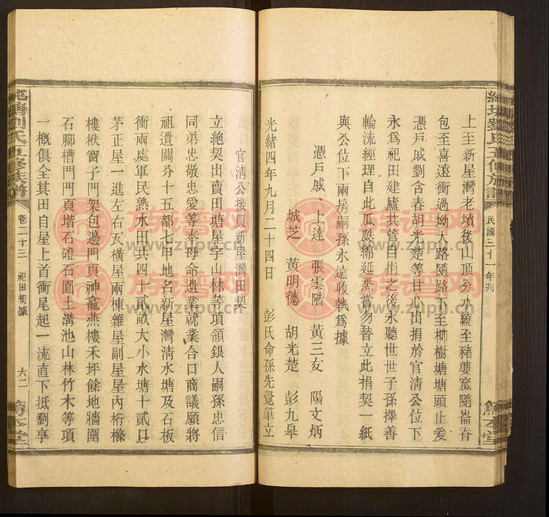 民國三十一年刋
上至新屋灣老墳後山頂分水繞至豬 隨崙脊
包至喜遠衝過坳入路隨路下至柳樹塘塘頭止愛
憑戶戚劉含春胡光楚等日允出捐於官清公位下
永為祠祀田建廬共管自捐之後永聽世世子孫擇善
輪流經理自此瓜瓞綿延蒸嘗勿替立此捐契一紙
與公位下兩房嗣孫永遠收執為據
憑戶戚 上達 張寀階 黃三友 陽文炳
城芝 黃明德 胡光楚 彭九皋
光緒四年九月二十四日 彭氏命孫先覺筆立
官清公接買新屋灣田契
立絶契出賣田塘屋宇山林等項領銀人嗣孫忠信
同弟忠敬忠愛等奉母命遺業就業合口商議願將
祖遺關分十五都七甲地名新屋灣清水塘及石板
衝兩處軍民熟水田共四十貳畝大小水塘十貳口
茅正屋一進左右瓦橫屋兩棟雜屋副屋屋內桁條
樓栿窗子門架包邊門頁神龕燕樓禾坪餘地牆圍
石腳檐門門頁堦石礎石圓土溝池山林竹木等項
一概俱全其田自屋上首衝尾起一流直下抵劉享
卷二十三 祀田契據 六二